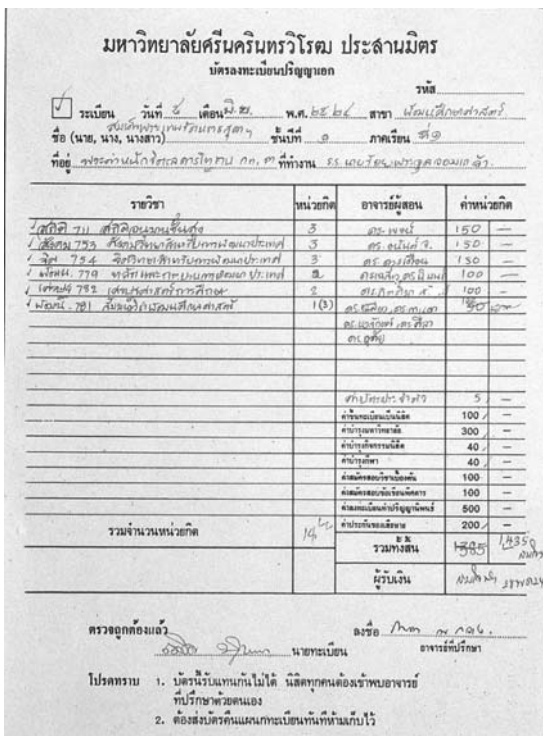 มหาวิทยาลัยศรีนครินทรวิโรฒ ประสานมิตร
บัตรลงทะเบียนปริญญาเอก
รหัส
ระเบียน วันที่ ๕ เดือน มิ.ย. พ.ศ. ๒๕๒๔ สาขา พัฒนศึกษาศาสตร์
ชื่อ (นาย, นาง, นางสาว) สมเด็จพระเทพรัตนราชสุดาฯ ชั้นปีที่ ๑ ภาคเรียน ที่๑
ที่อยู่ พระตำหนักจิตรลดารโหฐาน กท. ๓ ที่ทำงาน รร.นายร้อยพระจุลจอมเกล้า
รายวิชา หน่วยกิต อาจารย์ผู้สอน ค่าหน่วยกิต
สถิติ 711 สถิติอนุมานขั้นสูง 3 ดร. 150 —
สังคม 753 สังคมวิทยาสำหรับการพัฒนาประเทศ 3 ดร. อนันต์ 150 —
จิต 754 จิตวิทยาสำหรับการพัฒนาประเทศ 3 ดร. ดวงเดือน 150 —
พัฒน. 779 หลักและกระบวนการพัฒนาประเทศ 2 100 —
เศรษฐ 782 เศรษฐศาสตร์การศึกษา 2 100 —
พัฒน์. 781 สัมมนาพัฒนศึกษาศาสตร์ 1(3)
ดร.อุทัย
ค่าบัตรประจำตัว 5 —
ค่าขึ้นทะเบียนเป็นนิสิต 100 —
ค่าบำรุงมหาวิทยาลัย 300 —
ค่าบำรุงกิจกรรมนิสิต 40 —
ค่าบำรุงกีฬา 40 —
ค่าสมัครสอบวิชาเบื้องต้น 100 —
ค่าสมัครสอบข้อเขียนพิสดาร 100 —
ค่าลงทะเบียนทำปริญญานิพนธ์ 500 —
ค่าประกันของเสียหาย 200 —
รวมจำนวนหน่วยกิต 14 รวมทั้งสิ้น 1385 1,435
ผู้รับเงิน
ตรวจถูกต้องแล้ว ลงชื่อ
นายทะเบียน อาจารย์ที่ปรึกษา
โปรดทราบ 1. บัตรนี้รับแทนกันไม่ได้ นิสิตทุกคนต้องเข้าพบอาจารย์
ที่ปรึกษาด้วยตนเอง
2. ต้องส่งบัตรคืนแผนกทะเบียนทันทีห้ามเก็บไว้